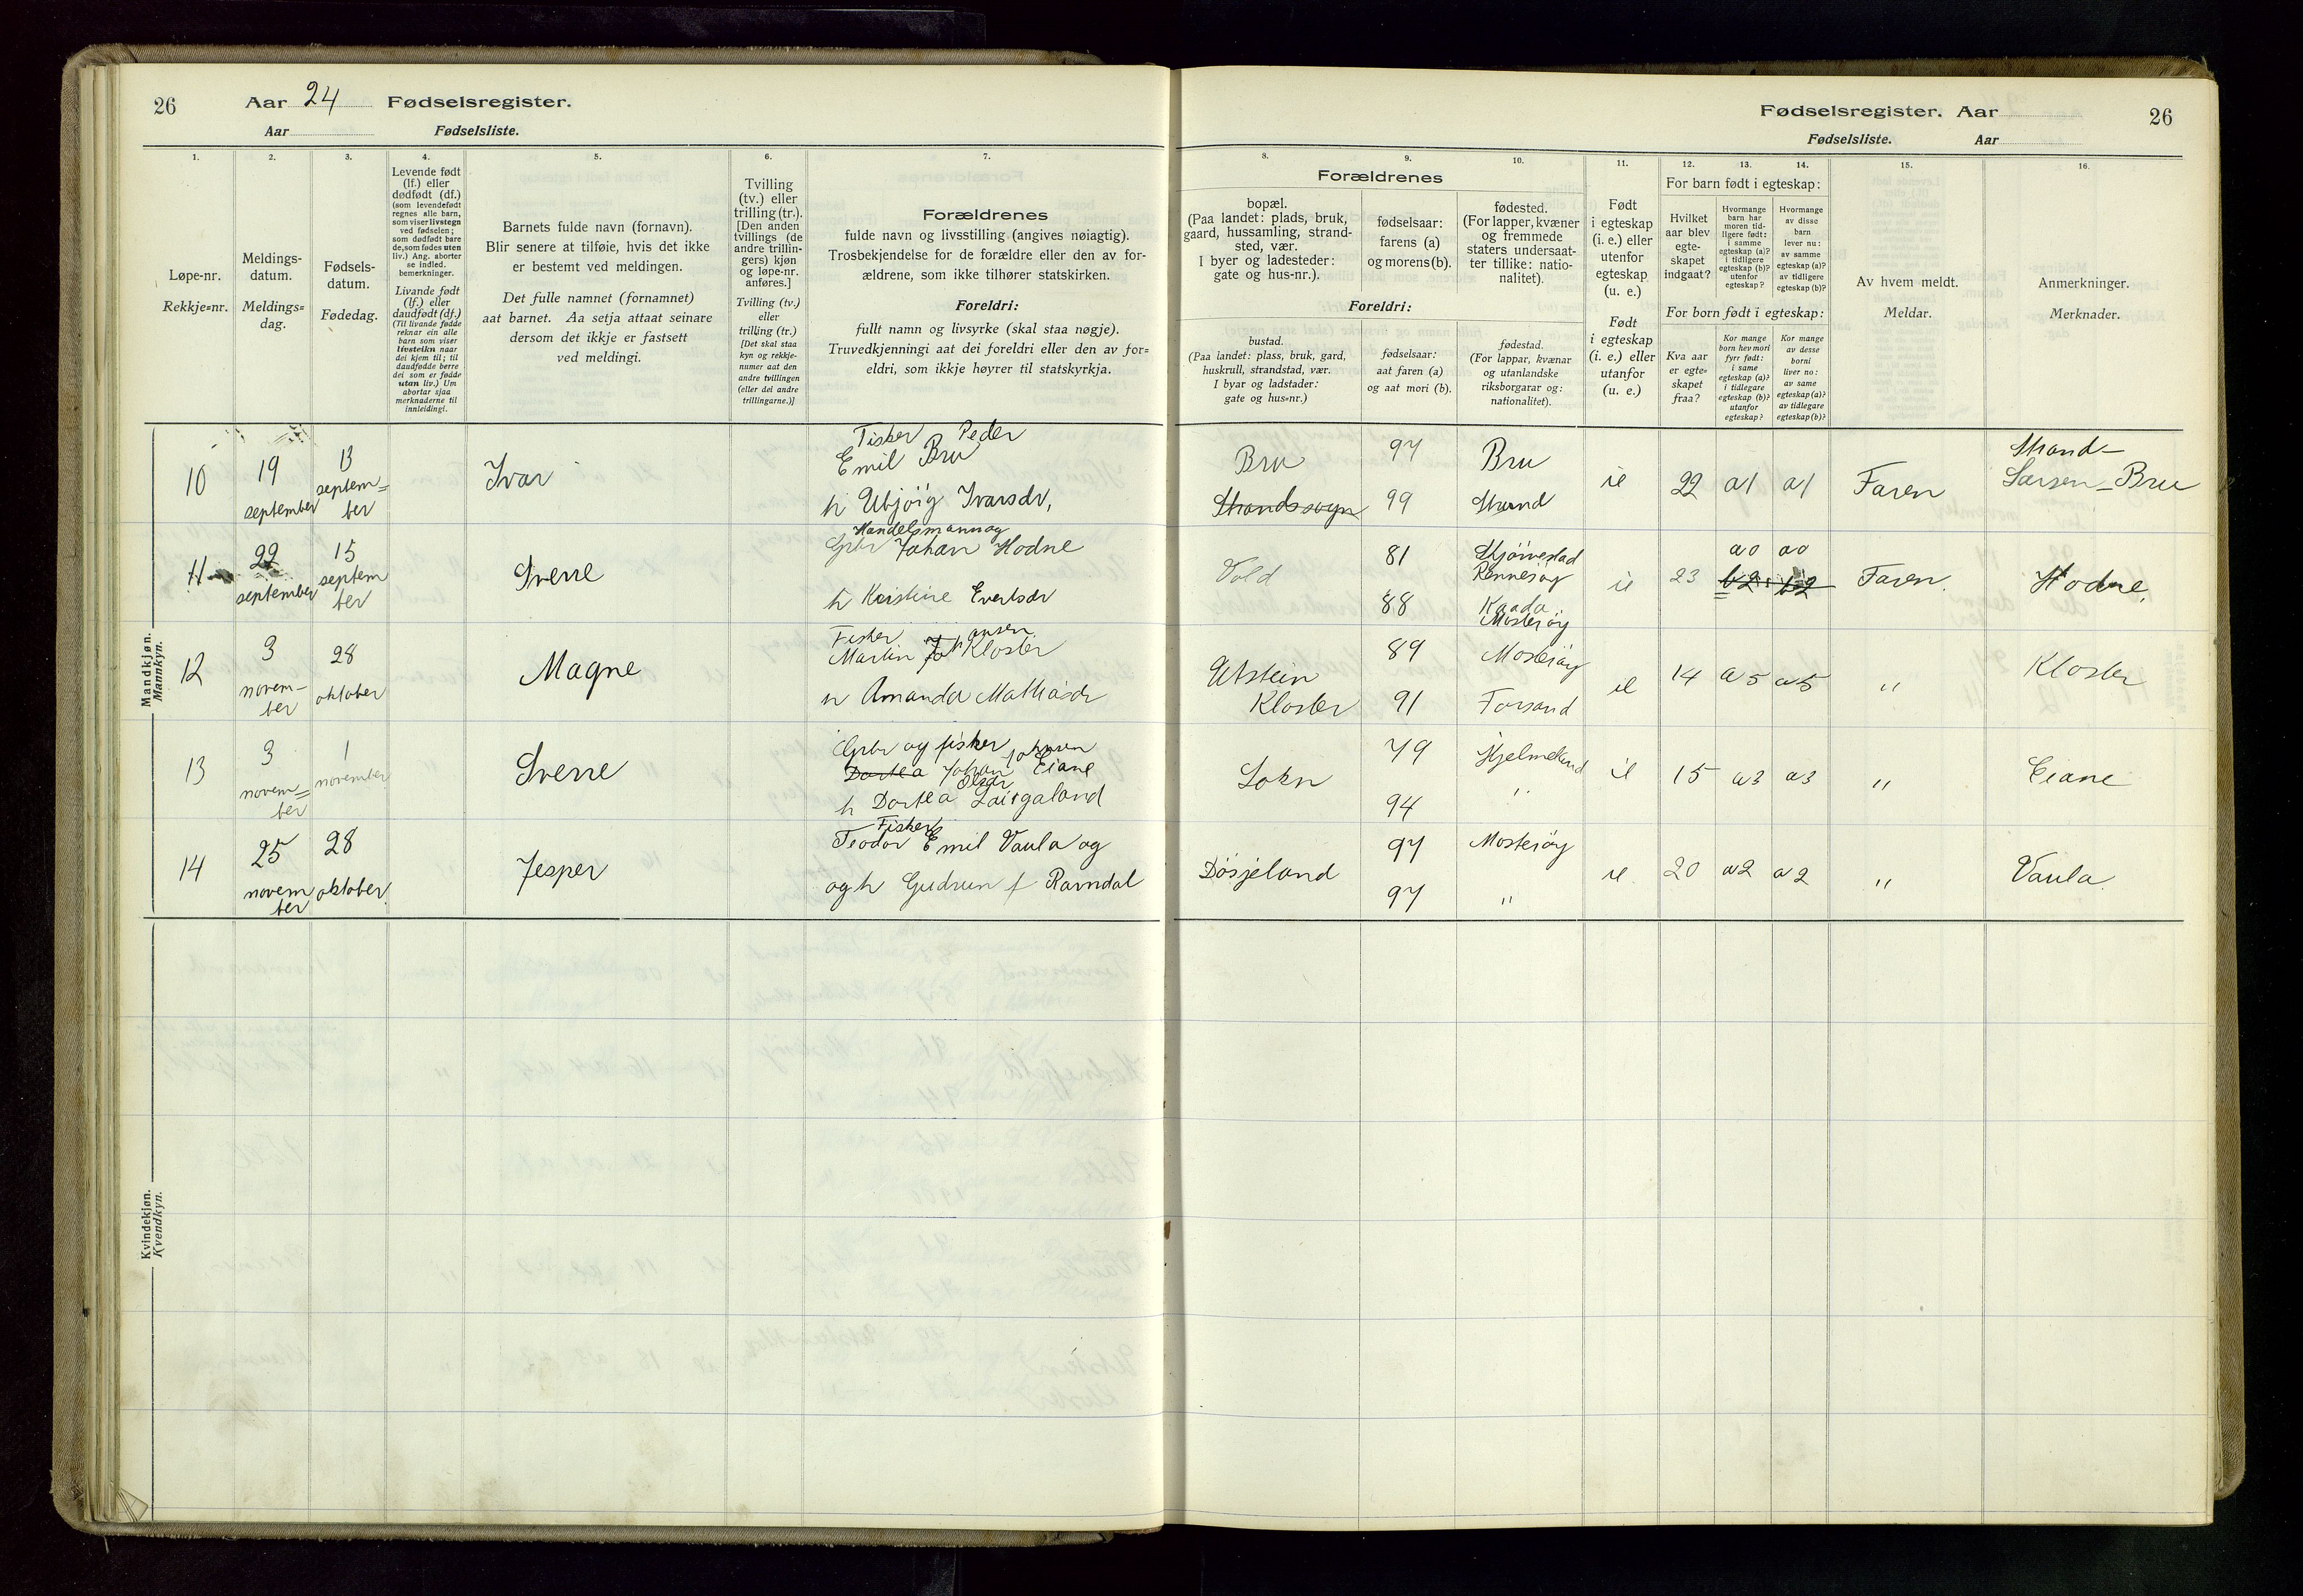 26 Aar 24 Fødselsregister.
Aar Fødselsliste.
1. 2. 3. 4. 5. 6. 7.
Løpe-nr.
Rekkje=nr.
Meldings-
datum.
Meldings=
dag.
Fødsels-
datum.
Fødedag.
Levende født
(lf.) eller
dødfødt (df.)
(som levendefødt
regnes alle barn,
som viser livstegn
ved fødselen;
som dødfødt bare
de, som fødes uten
liv.) Ang. aborter
se indled.
bemerkninger.
Livande født
(lf.) eller
daudfødt (df.)
(Til livande fødde
reknar ein alle
barn som viser
livsteikn naar
dei kjem til; til
daudfødde berre
dei som er fødde
utan liv.) Um
abortar sjaa
merknaderne til
innleidingi.
Barnets fulde navn (fornavn).
Blir senere at tilføie, hvis det ikke
er bestemt ved meldingen.
Det fulle namnet (fornamnet)
aat barnet. Aa setja attaat seinare
dersom det ikkje er fastsett
ved meldingi.
Tvilling
(tv.) eller
trilling (tr.).
[Den anden
tvillings (de
andre trillin-
gers) kjøn
og løpe-nr.
anføres.]
Tvilling (tv.)
eller
trilling (tr.)
[Det skal staa
kyn og rekkje-
numer aat den
andre tvillingen
(eller dei andre
trillingarne.)]
Forældrenes
fulde navn og livsstilling (angives nøiagtig).
Trosbekjendelse for de forældre eller den av for-
ældrene, som ikke tilhører statskirken.
Foreldri:
fullt namn og livsyrke (skal staa nøgje).
Truvedkjenningi aat dei foreldri eller den av for=
eldri, som ikkje høyrer til statskyrkja.
Mandkjøn.
Mannkyn.
10 19 september 13 septem=ber Ivar
Fisker Peder
Emil Bru
h Ubjöig Ivarsdr,
11 22 september 15 september Sverre
Handelsmann og
Grbr Johan Hodne
h Kristine Evertsdr
12 3 novem-ber 28 oktober Magne
Fisker Johansen
Martin Kloster
h Amanda Mathiasdr
13 3 novem=ber 1 november Sverre
Grbr og fisker Johnsen
Dortea Johan Eiane
h Dortea
14 25 november 28 oktober Jesper
Fisker
Teodor Emil Vaula og
og h Gudrun f Ramndal
Kvindekjøn.
Kvendkyn.
Fødselsregister. Aar 26
Fødselsliste. Aar
8. 9. 10. 11. 12. 13. 14. 15. 16.
Forældrenes
bopæl.
(Paa landet: plads, bruk,
gaard, hussamling, strand-
sted, vær.
I byer og ladesteder:
gate og hus-nr.).
fødselsaar:
farens (a)
og morens (b).
fødested.
(For lapper, kvæner
og fremmede
staters undersaat-
ter tillike: natio-
nalitet).
Foreldri:
bustad.
(Paa landet: plass, bruk, gard,
huskrull, strandstad, vær.
I byar og ladstader:
gate og hus=nr.)
fødselsaar:
aat faren (a)
og aat mori (b).
fødestad.
(For lappar, kvænar
og utanlandske
riksborgarar og:
nationalitet).
Født
i egteskap
(i. e.) eller
utenfor
egteskap
(u. e.)
Født
i egteskap
(i. e.) eller
utanfor
(u. e.)
For barn født i egteskap:
Hvilket
aar blev
egte-
skapet
indgaat?
Hvormange
barn har
moren tid-
ligere født:
i samme
egteskap (a)?
i tidligere
egteskap (b)?
utenfor
egteskap?
Hvormange
av disse
barn
lever nu:
av samme
egteskap (a)?
av tidligere
egteskap (b)?
For born født i egteskap:
Kva aar
er egte=
skapet
fraa?
Kor mange
born hev mori
fyrr født:
i same
egteskap (a)?
i tidlegare
egteskap (b)?
utanfor
egteskap?
Kor mange
av desse
borni
liver no:
av same
egteskap (a)?
av tidlegare
egteskap (b)?
Av hvem meldt.
Meldar.
Anmerkninger.
Merknader.
Bru 97 Bru ie 22 a1 a1 Faren Strand-
Strandsogn 99 Strand Larsen-Bru
Vold 81 Rennesöy ie 23 a0 a0 Faren. Hodne.
b2 b2
88 Kaada Mosteröy
Utstein 89 Mosteröy ie 14 a5 a5 " Kloster
Kloster 91 Forsand
Sokn 79 Hjelmeland ie 15 a3 a3 " Eiane
94 "
Dösjeland 97 Mosteröy ie 20 a2 a2 " Vaula
97 "